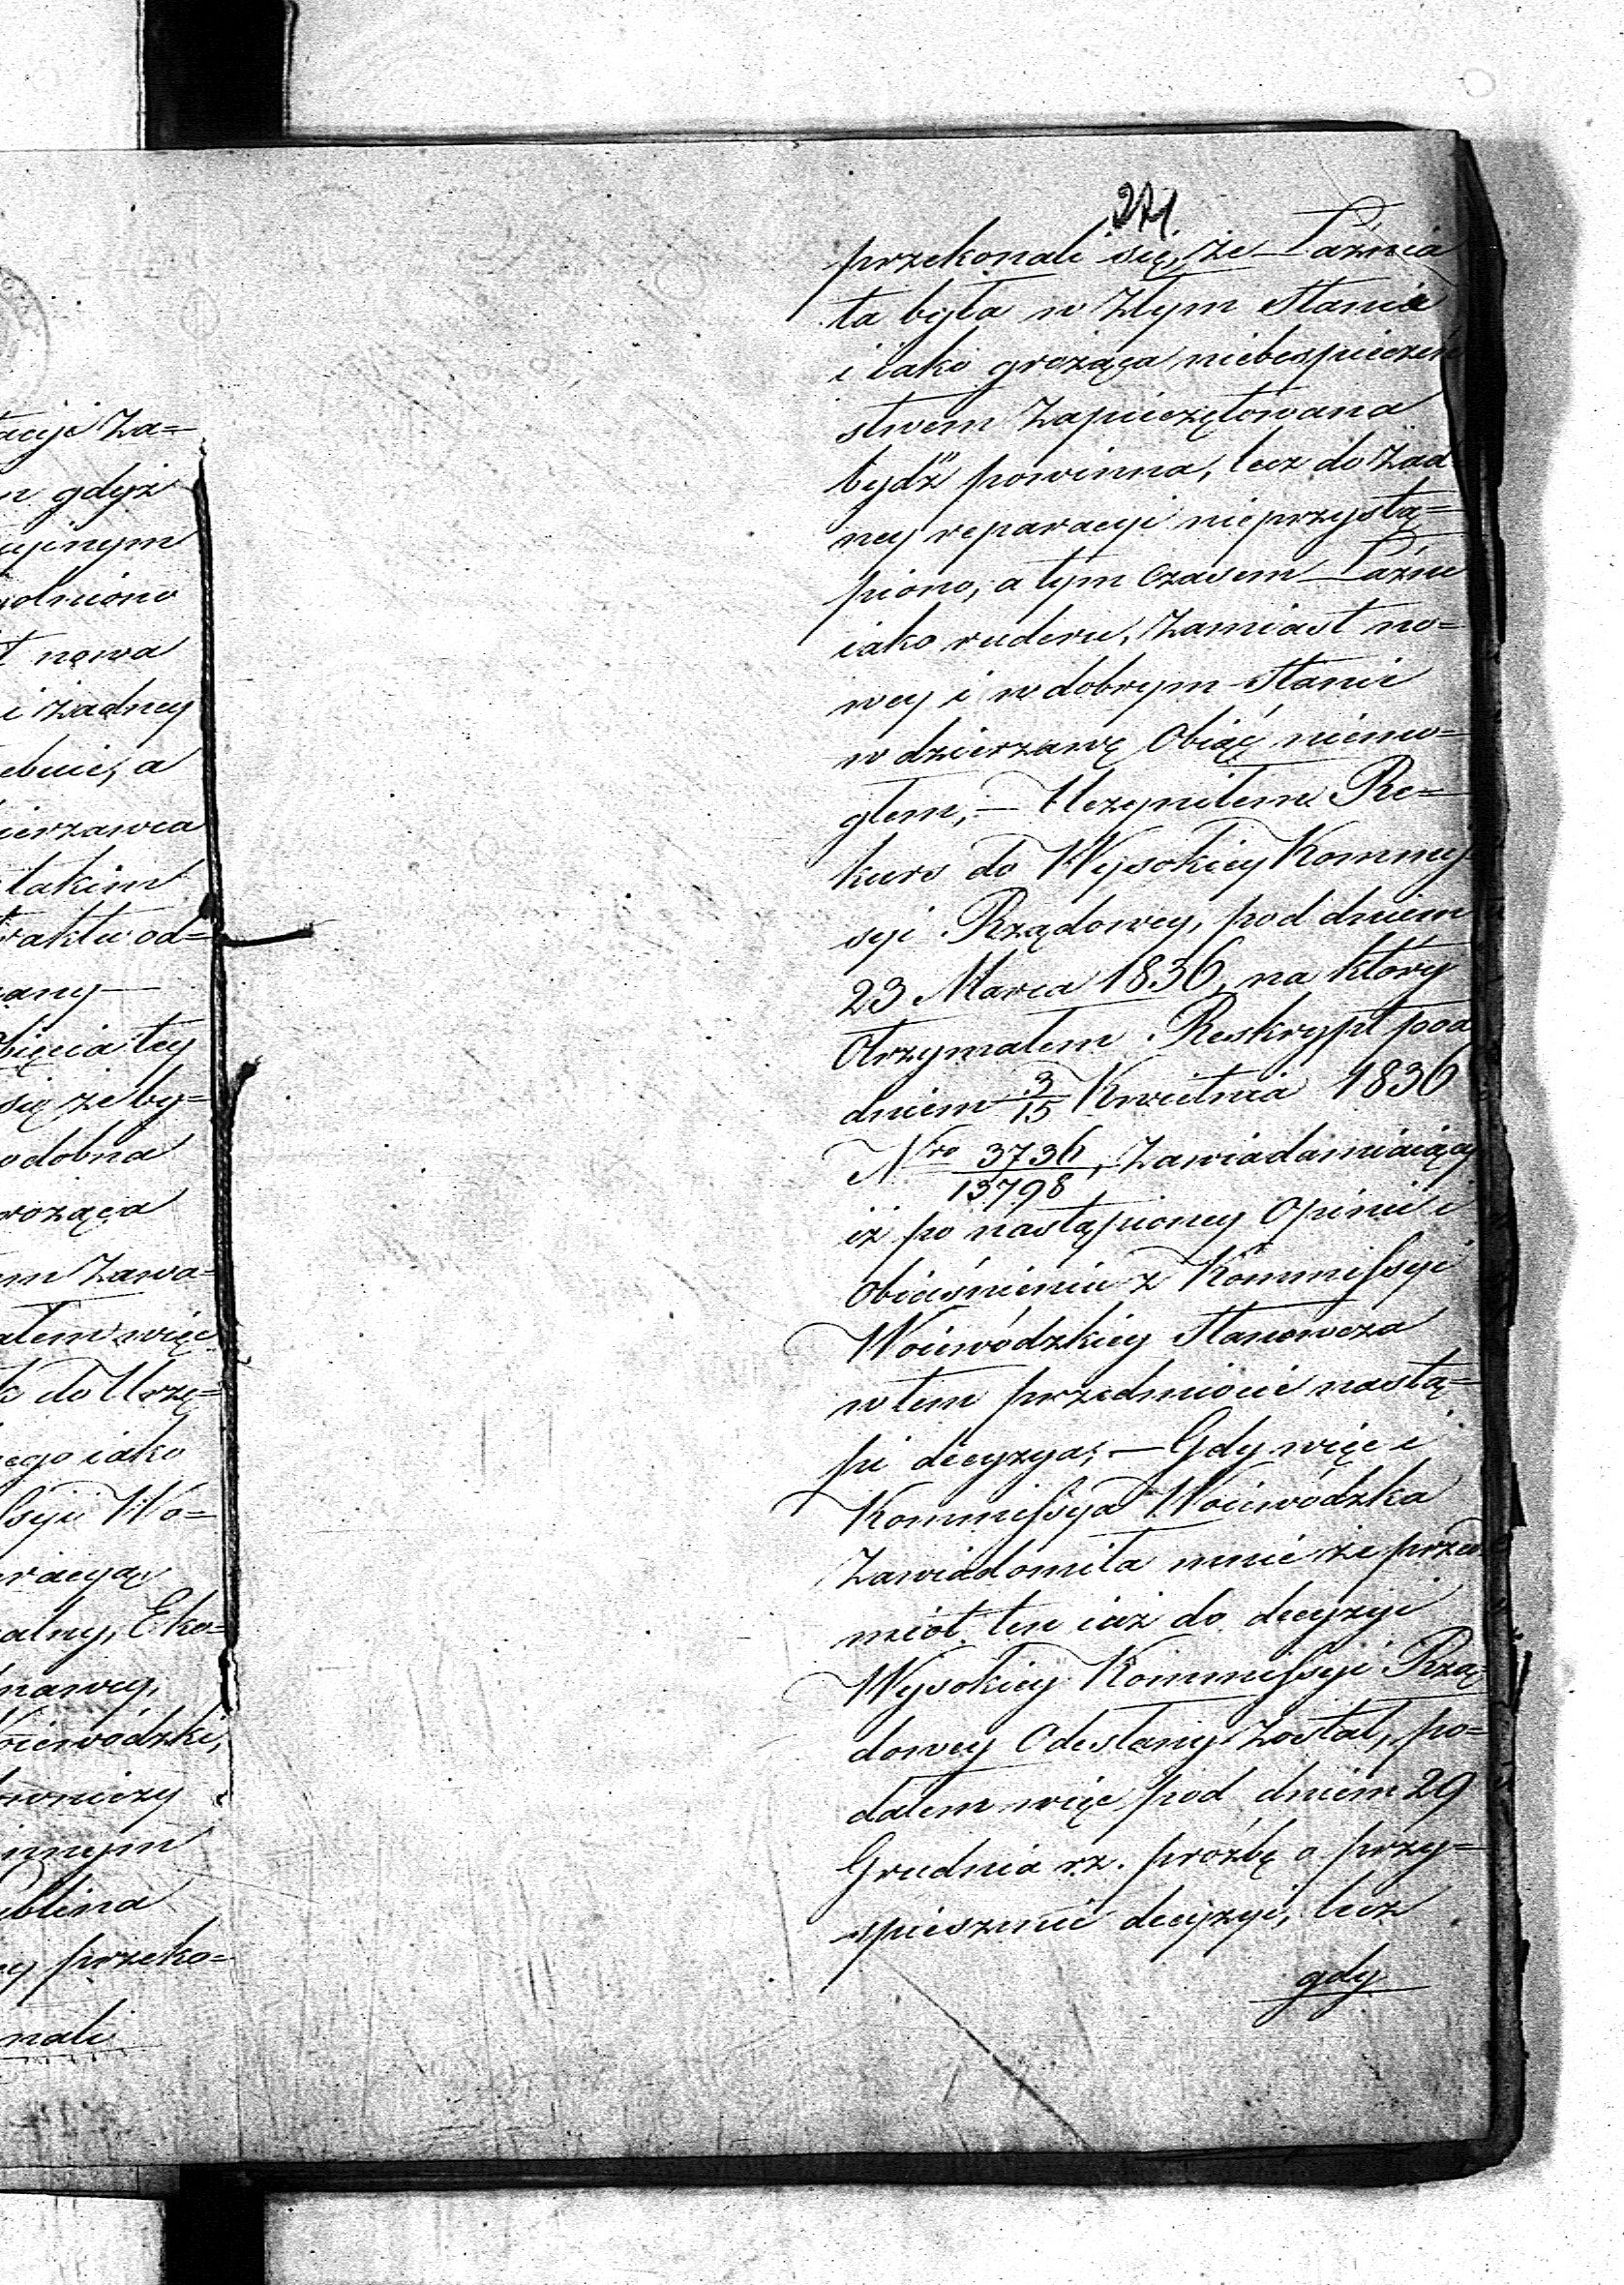 tacyje Za=
gdyż
nowa
i żadney
a
takim
od=
tey
się że by=
Zawa=
więc
do Urzę=
iako
Wo=
Eko=
przeko=
nali
271
przekonali się, że Łaźnia
ta była w złym stanie
i iako grożąca niebespieczeń
stwem zapieczętowana
bydź powinna, lecz do żad
ney reparacyi nieprzystą=
piono, a tym czasem Łaźnie
iako ruderu, zamiast no=
wey i w dobrym stanie
w dzierzawę obiąć niemo=
głem, — Uczyniłem Re=
kurs do Wysokiey Kommis
syi Rządowey, pod dniem
23 Marca 1836, na który
otrzymałem Reskrypt pod
dniem 3/15 Kwietnia 1836
Nro 3736/13798, zawiadamiaiący
iż po nastąpioney Opinii i
obiaśnieniu z Kommissyi
Woiewódzkiey stanowcza
w tem przedmiocie nastą=
pi decyzya; — Gdy więc i
Kommissya Woiewódzka
zawiadomiła mnie że przed
miot ten iuż do decyzyi
Wysokiey Kommissyi Rzą=
dowey Odesłany został, po=
dałem więc pod dniem 29
Grudnia rz. proźbę o przy=
spieszenie decyzyi, lecz
gdy